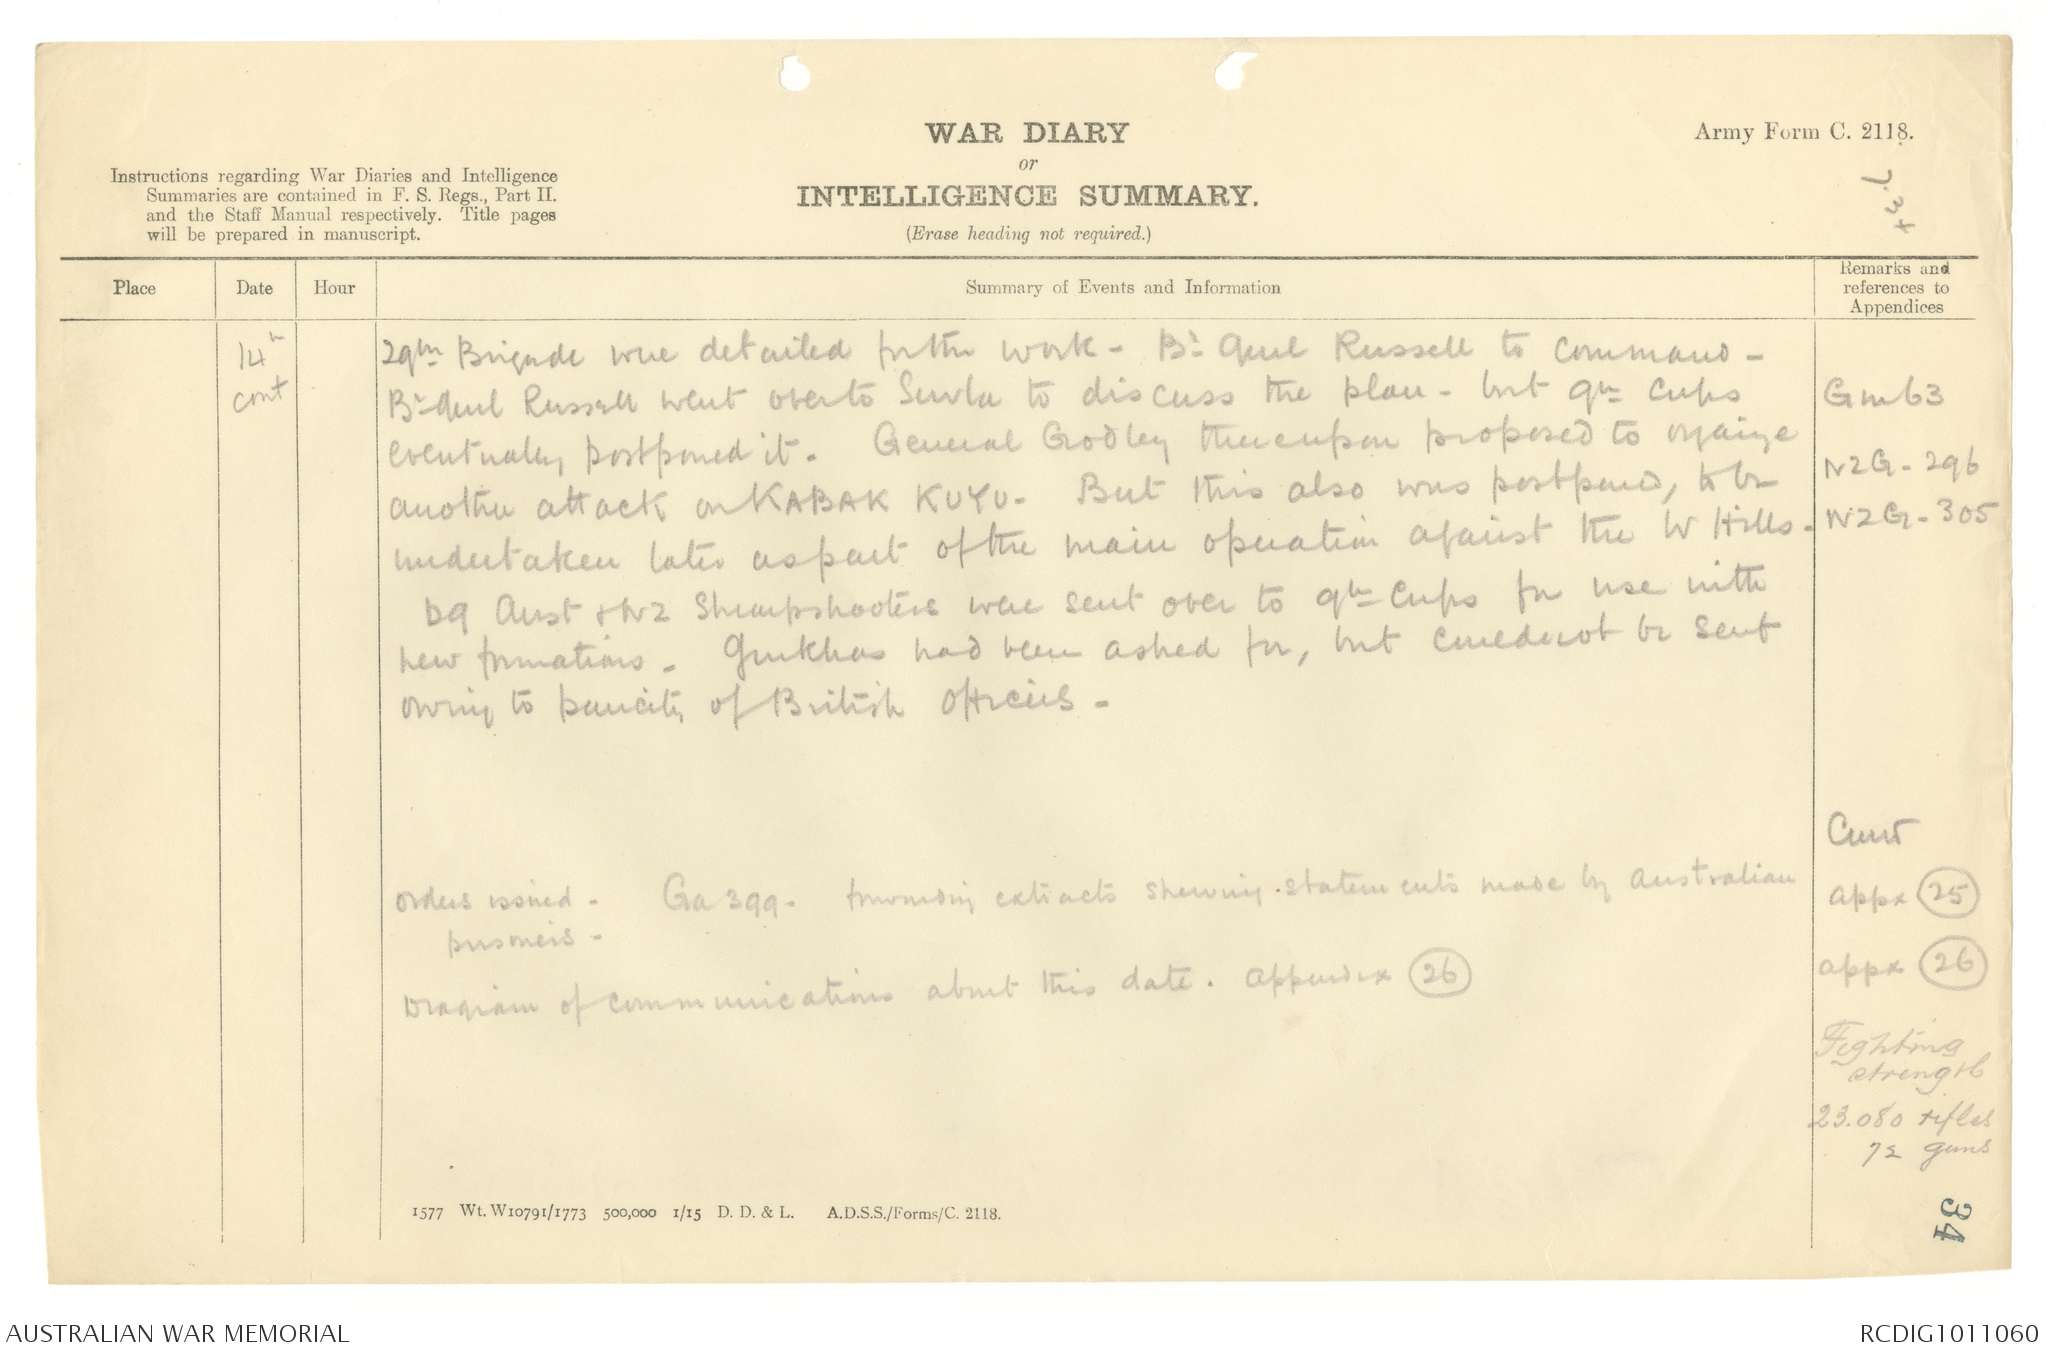 WAR DIARY
or
INTELLIGENCE SUMMARY.
(Erase heading not required.)
Army Form C. 2118.
Instructions regarding War Diaries and Intelligence
Summaries are contained in F. S. Regs., Part II.
and the Staff Manual respectively. Title pages
will be prepared in manuscript.
Place
Date
Hour
Summary of Events and Information
Remarks and
references to
Appendices
14th
cont
29th Brigade were detailed for the work - Br Genl Russell to command -
Br Genl Russell went over to Suvla to discuss the plan - but 9th Corps
eventually postponed it. General Godley thereupon proposed to organize
another attack on KABAK KUYU - But this also was postponed, to be
undertaken later as part of the main operation against the W Hills -
Aust & NZ Sharpshooters were sent over to 9th Corps for use with
new formations - Gurkhas had been asked for, but could not be sent
owing to paucity of British Officers -
Gm63
NZG - 296
NZG - 305
orders issued - Ga 399 - forwarding extracts shewing statements made by Australian
prisoners -
Diagram of communications about this date. Appendix 26
appx 25
appx 26
Fighting
strength
23.080 rifles
72 guns
34
1577 Wt. W10791/1773 500,000 1/15 D. D. & L. A.D.S.S./Forms/C. 2118.
AUSTRALIAN WAR MEMORIAL
RCDIG1011060